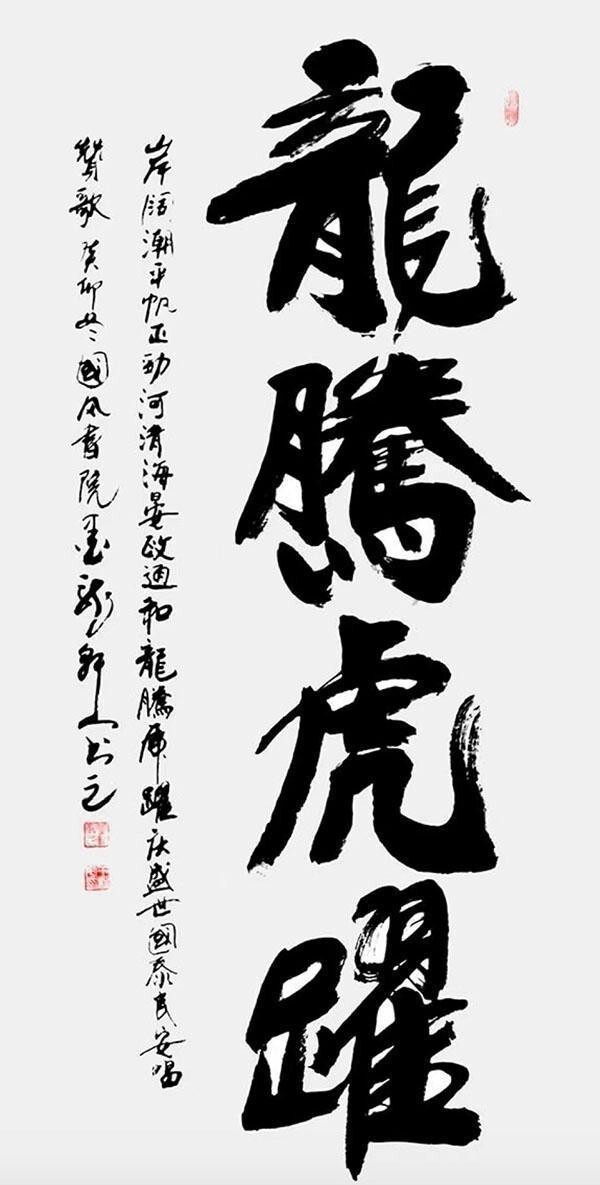 龍騰虎躍
岸阔潮平帆正勁河清海晏政通和龍騰虎躍庆盛世國泰民安唱
贊歌 癸卯冬國风書院墨龍軒人书之